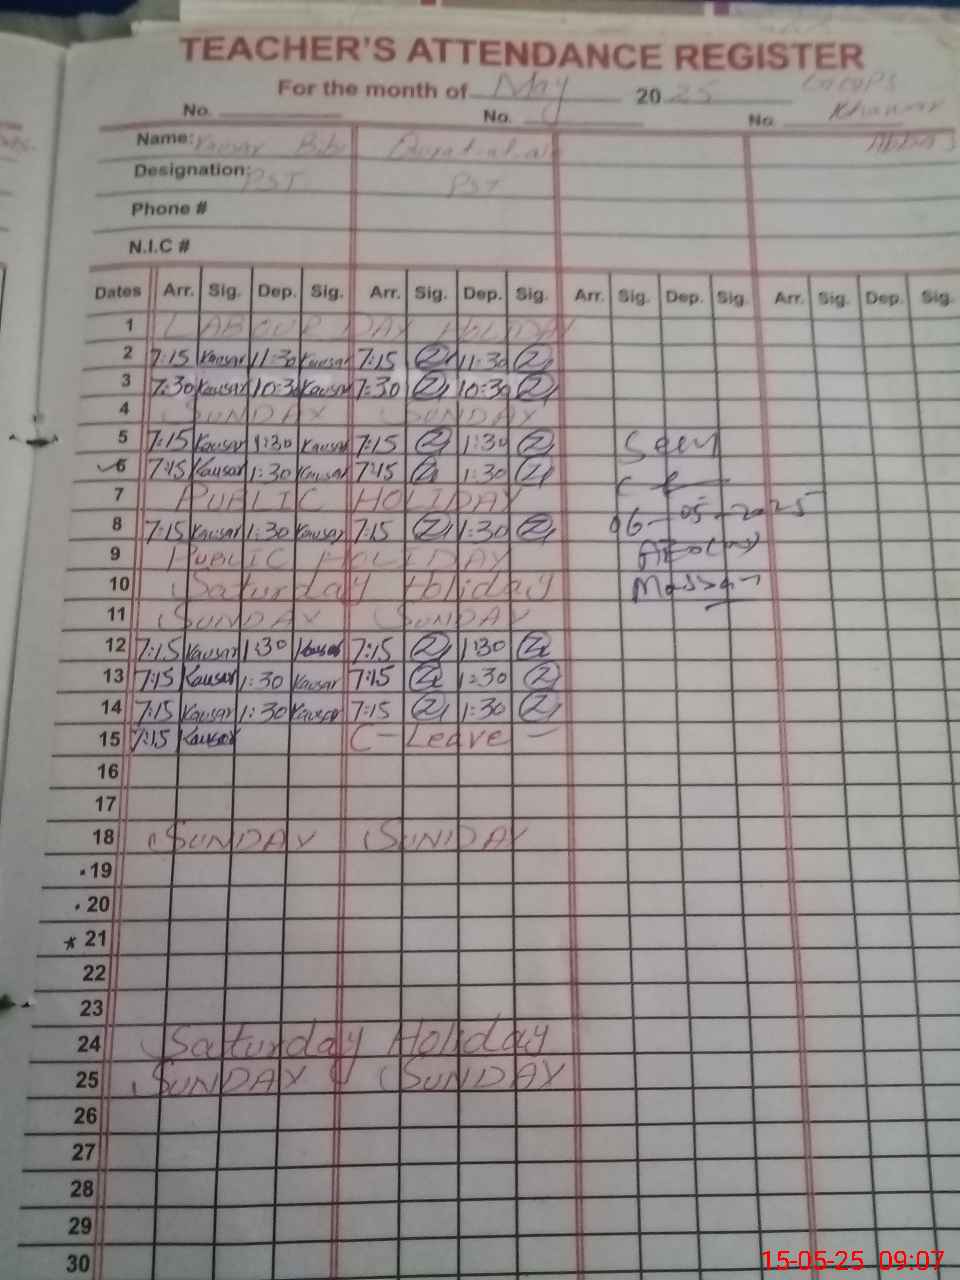 TEACHER'S ATTENDANCE REGISTER
For the month of May 2025 GGPS
No. No. No. Khanwar
Name: Kausar Bibi
Designation: PST PST
Phone #
N.I.C #
Dates Arr. Sig. Dep. Sig. Arr. Sig. Dep. Sig. Arr. Sig. Dep. Sig. Arr. Sig. Dep. Sig.
1 LABOUR DAY HOLIDAY
2 7:15 Kausar 11:30 Kausar 7:15 11:30
3 7:30 Kausar 10:30 Kausar 7:30 10:30
4 SUNDAY SUNDAY
5 7:15 Kausar 1:30 Kausar 7:15 1:30 Seen
6 7:15 Kausar 1:30 Kausar 7:15 1:30
7 PUBLIC HOLIDAY
8 7:15 Kausar 1:30 Kausar 7:15 1:30 06-05-2025
9 PUBLIC HOLIDAY
10 Saturday Holiday
11 SUNDAY SUNDAY
12 7:15 Kausar 1:30 Kausar 7:15 1:30
13 7:15 Kausar 1:30 Kausar 7:15 1:30
14 7:15 Kausar 1:30 Kausar 7:15 1:30
15 7:15 Kausar C-Leave
16
17
18 SUNDAY SUNDAY
19
20
* 21
22
23
24 Saturday Holiday
25 SUNDAY SUNDAY
26
27
28
29
30
15-05-25 09:07